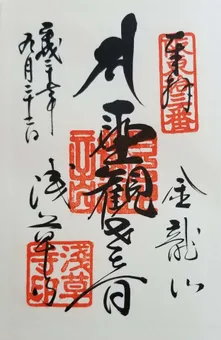 奉拝
坂東拾三番
金龍山
聖観世音
浅草寺
浅草寺
平成二十七年
九月二十二日